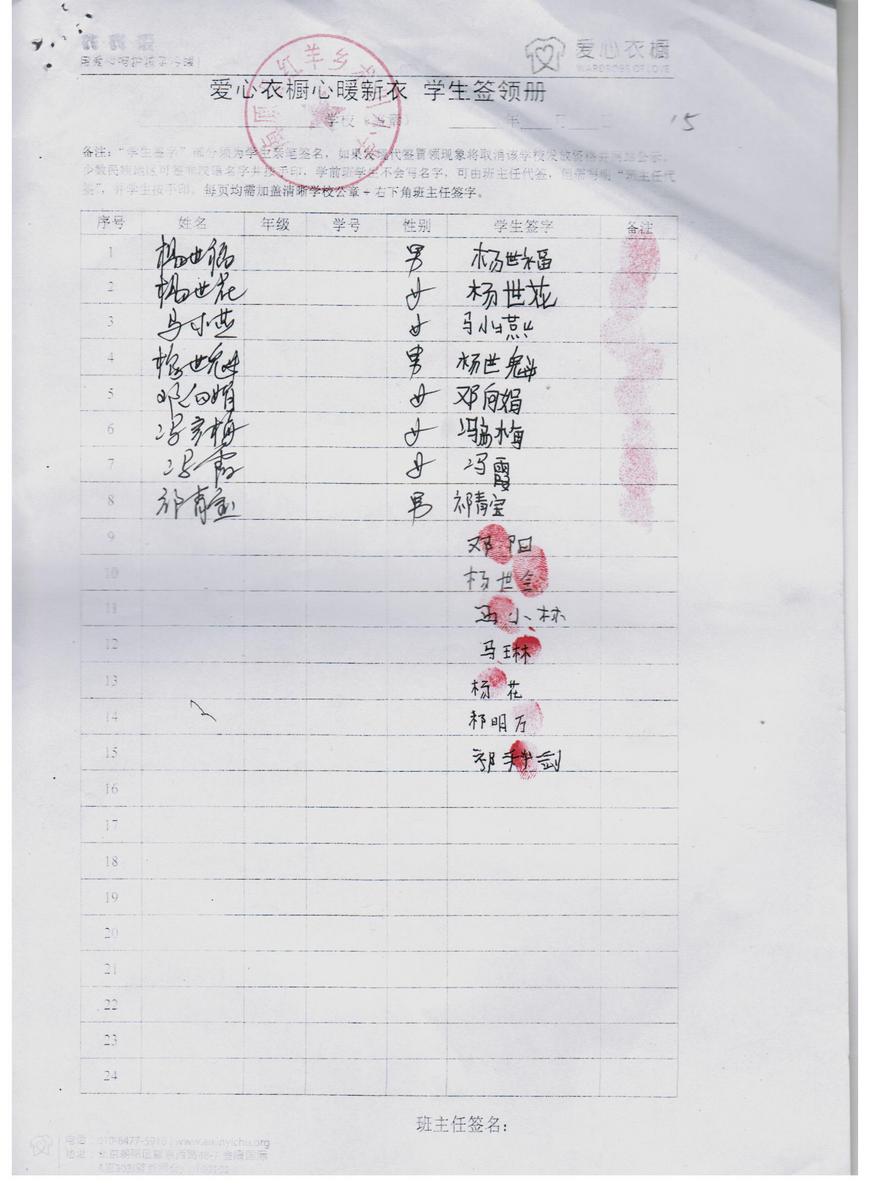 爱心衣橱
WARDROBE OF LOVE
爱心衣橱心暖新衣 学生签领册
学校 年 月 日 15
备注：“学生签字”部分须为学生亲笔签名，如果发现代签冒领现象将取消该学校发放资格并网站公示。
少数民族地区可签本民族名字并按手印，学前班学生不会写名字，可由班主任代签，但需写明“班主任代
签”，并学生按手印。每页均需加盖清晰学校公章+右下角班主任签字。
序号 姓名 年级 学号 性别 学生签字 备注
1 杨世福 男 杨世福
2 杨世花 女 杨世花
3 马小燕 女 马小燕
4 杨世魁 男 杨世魁
5 邓向娟 女 邓向娟
6 冯彦梅 女 冯梅
7 冯霞 女 冯霞
8 祁青宝 男 祁青宝
9 邓阳
10 杨世
11 小林
12 马琳
13 杨花
14 祁明万
15 剑
16
17
18
19
20
21
22
23
24
班主任签名：
电话：010-6477-5910 | www.aixinyichu.org